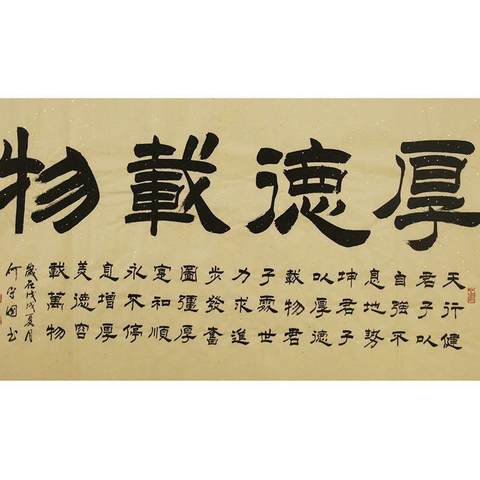 厚德載物
天行健
君子以
自強不
息地勢
坤君子
以厚德
載物君
子處世
力求進
步發奮
圖彊厚
寬和順
永不停
息增厚
美德容
載萬物
歲在戊戌夏月
何國书